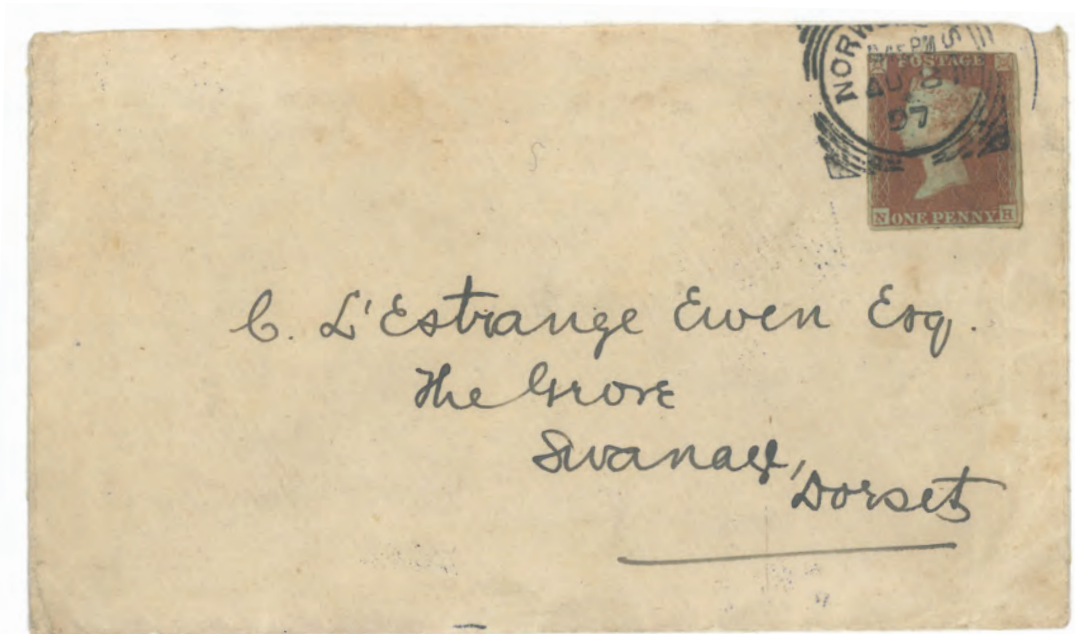 NORW
S
PM
AU 31
97
POSTAGE
N ONE PENNY H
C. L'Estrange Ewen Esq.
The Grove
Swanage,
Dorset